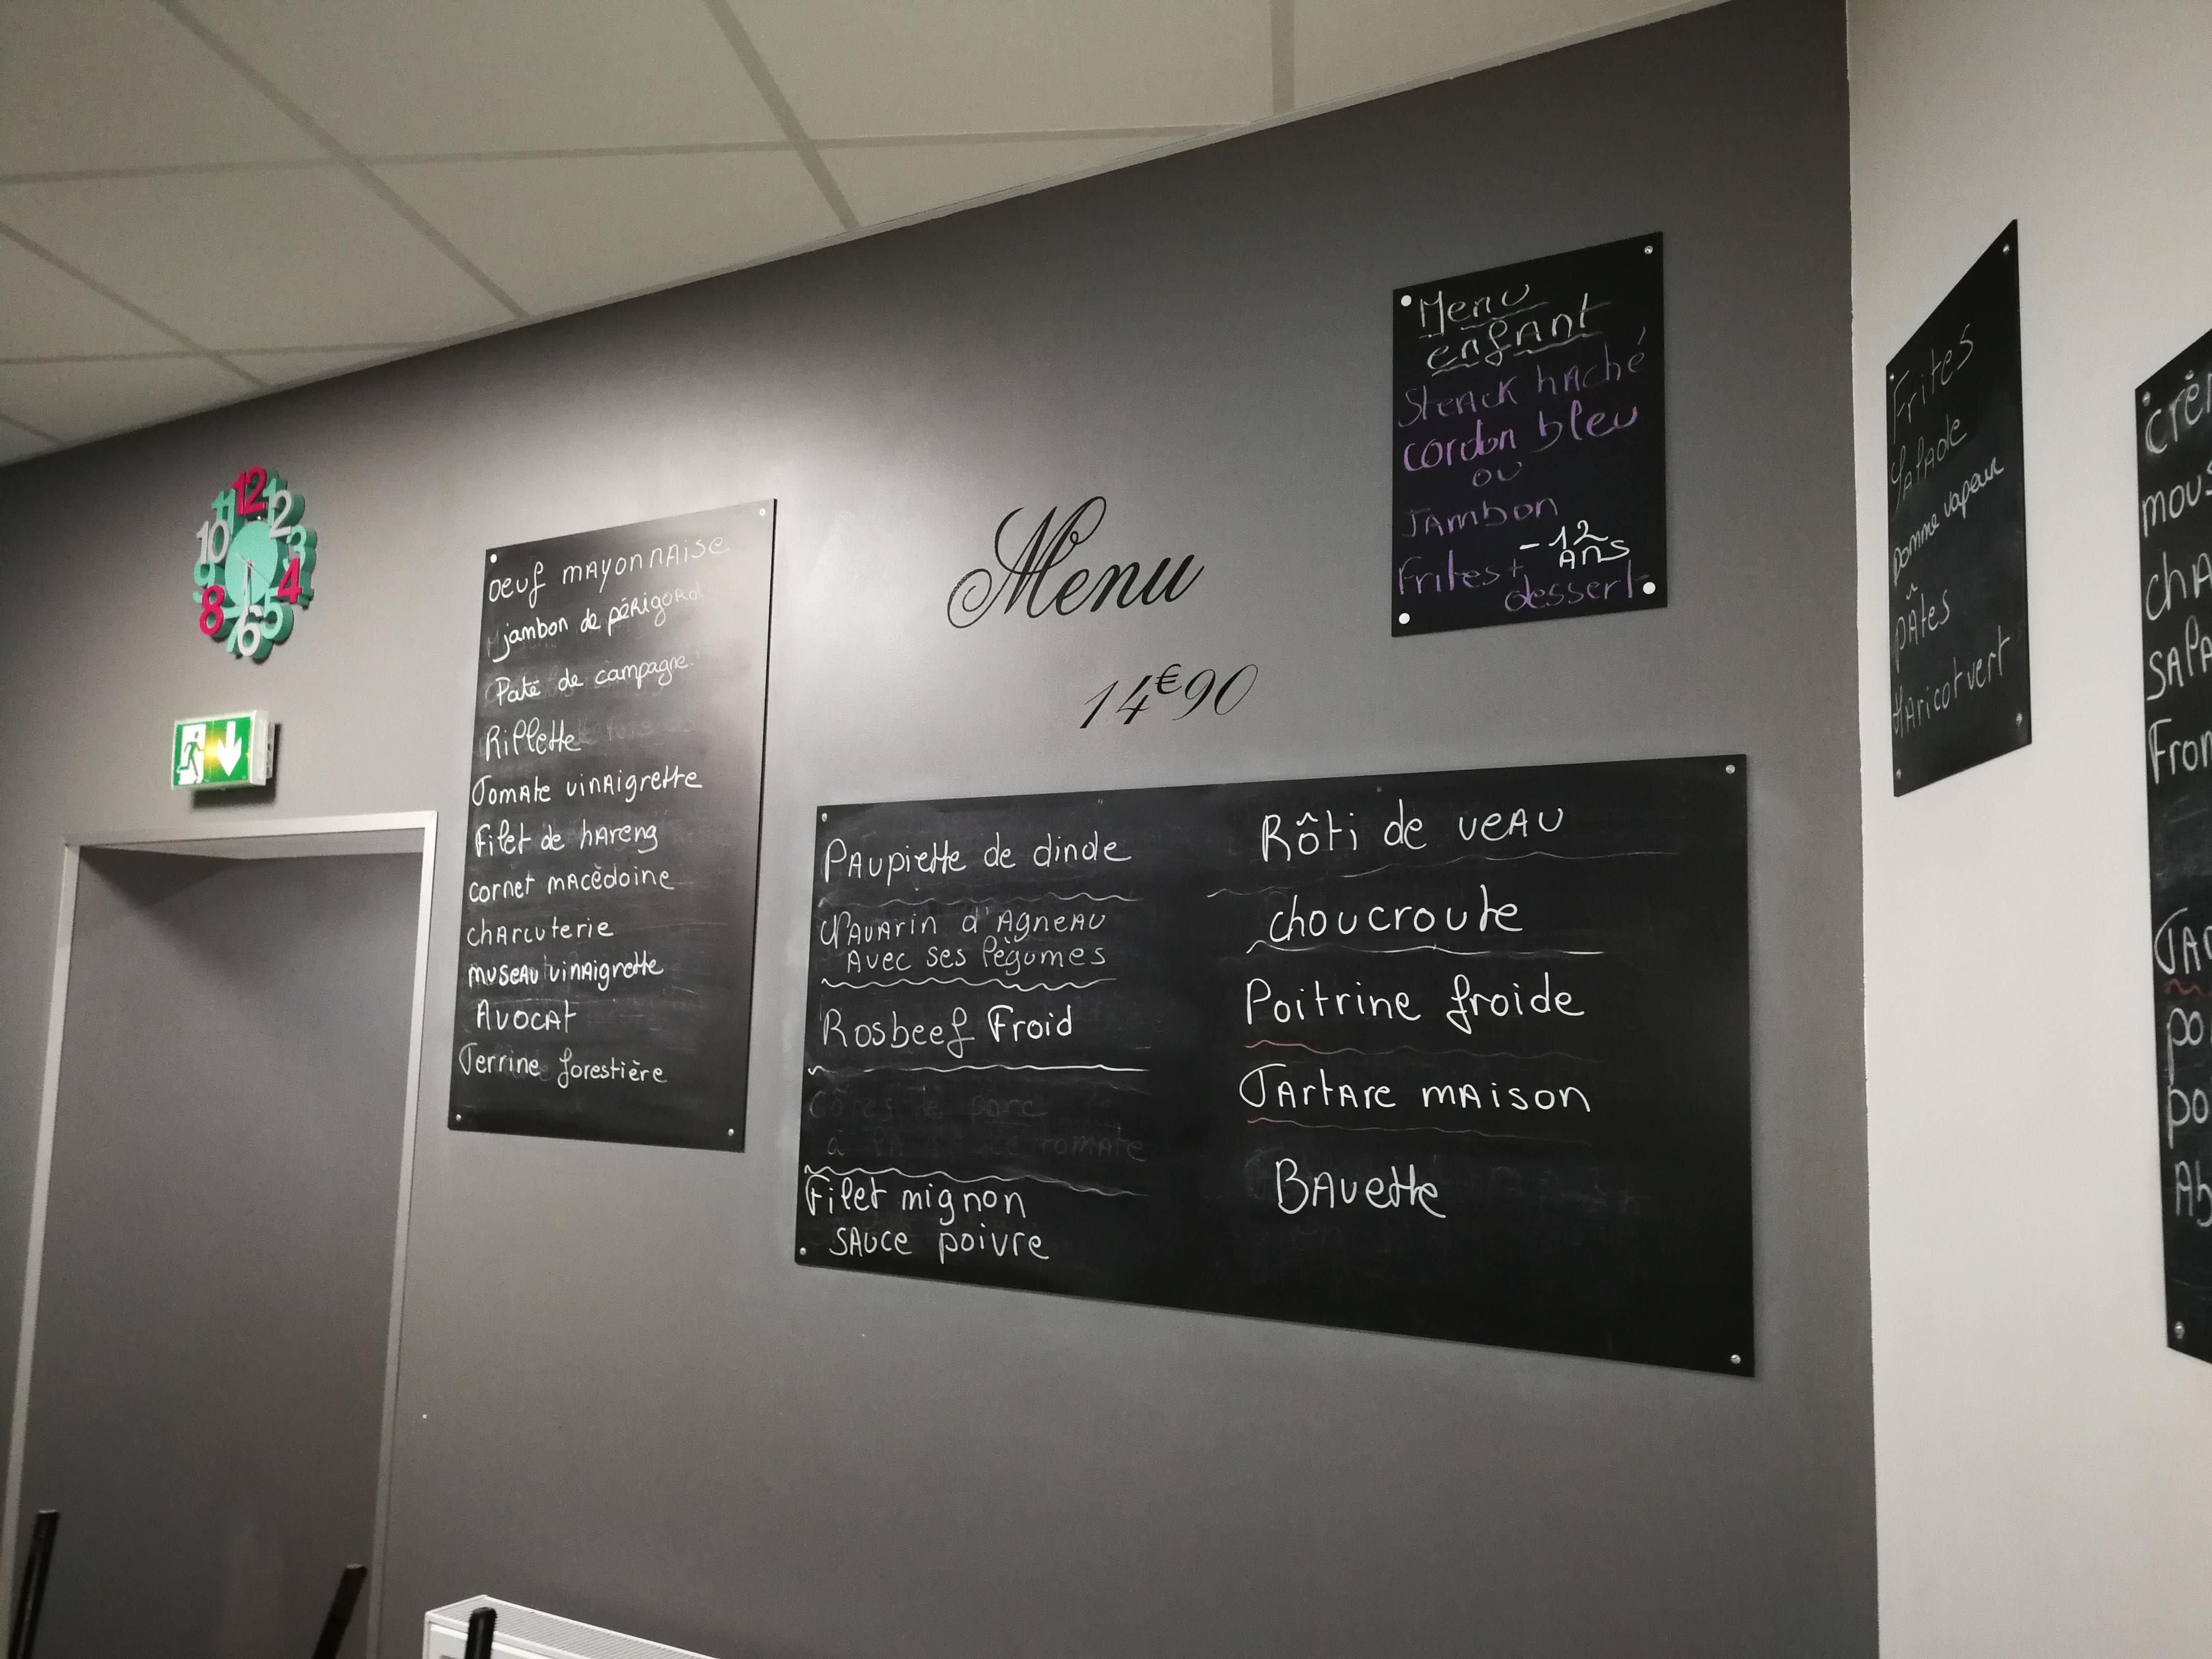 12
1
2
3
4
5
6
7
8
9
10
11
oeuf mayonnaise
jambon de périgord
Paté de campagne
Rillette
Tomate vinaigrette
Filet de hareng
cornet macèdoine
charcuterie
museau vinaigrette
Avocat
Terrine forestière
Menu
14€90
Menu
enfant
Steack haché
cordon bleu
ou
Jambon
Frites +
-12
ans
dessert
Paupiette de dinde
Navarin d'Agneau
Avec ses lègumes
Rosbeef Froid
Côtes de porc
à la sauce tomate
Filet mignon
sauce poivre
Rôti de veau
choucroute
Poitrine froide
Tartare maison
Bavette
Frites
Salade
pomme vapeur
pâtes
Haricot vert